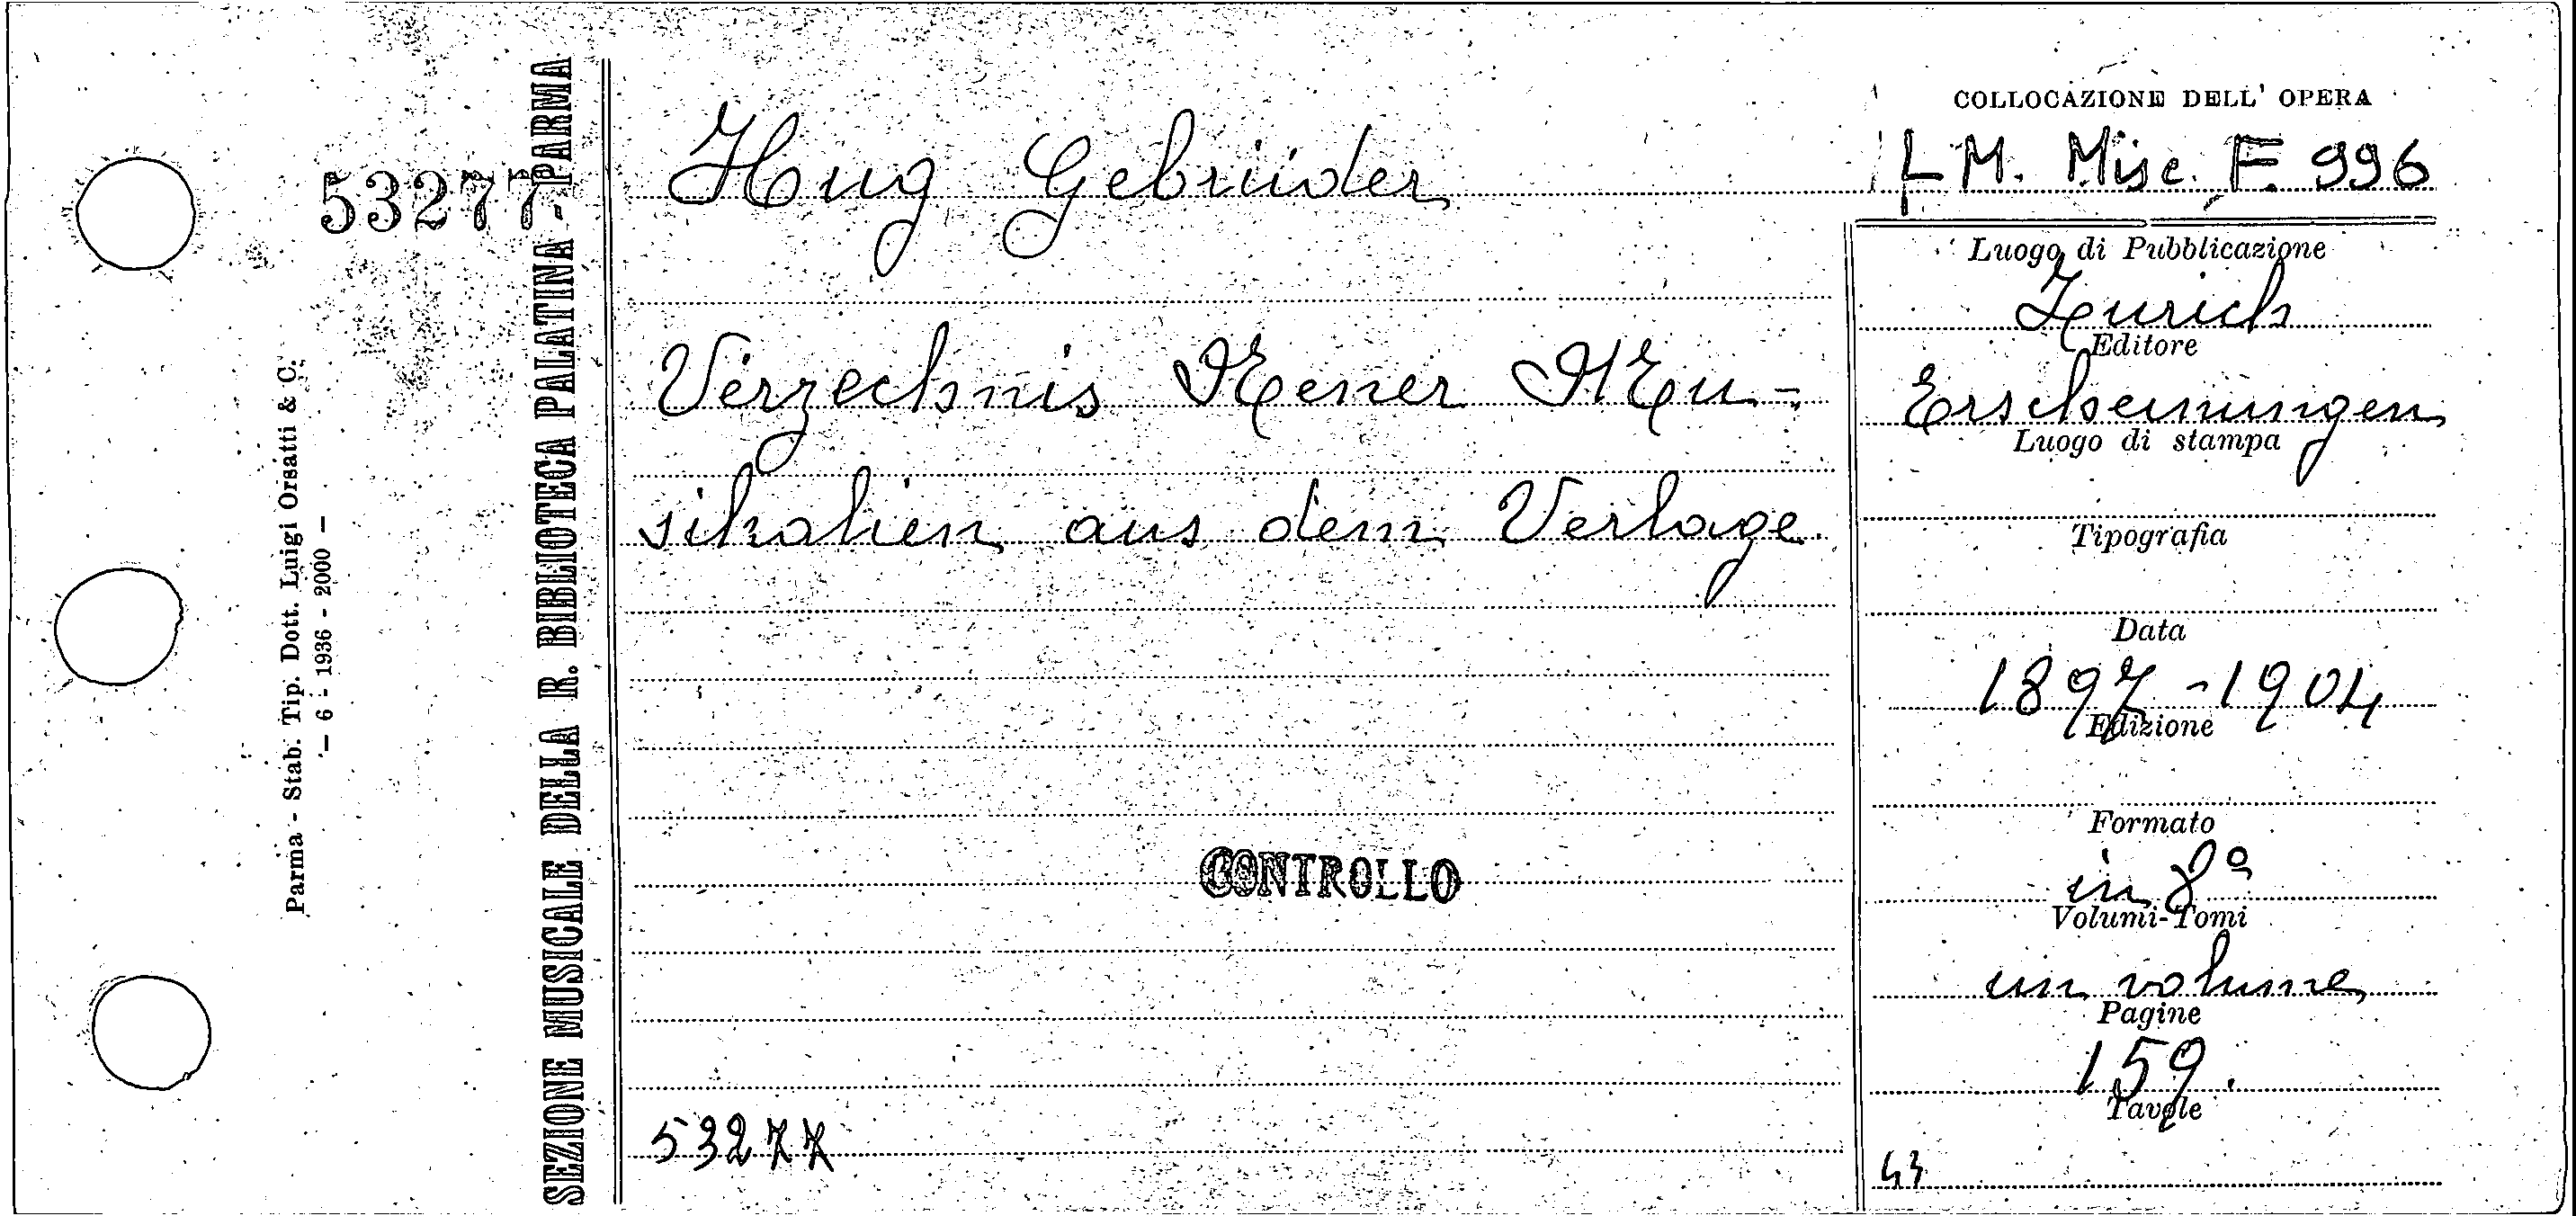 53277
Parma - Stab. Tip. Dott. Luigi Orsatti & C.
— 6 - 1936 - 2000 —
SEZIONE MUSICALE DELLA R. BIBLIOTECA PALATINA - PARMA
Hug Gebrüder
Verzechnis Neuer Mu-
sikalien aus dem Verlage
CONTROLLO
53277
COLLOCAZIONE DELL' OPERA
M. Misc. F. 996
Luogo di Pubblicazione
Zurich
Editore
Erscheinungen
Luogo di stampa
Tipografia
Data
1897-1904
Edizione
Formato
in 8º
Volumi-Tomi
un volume
Pagine
159.
Tavole
43